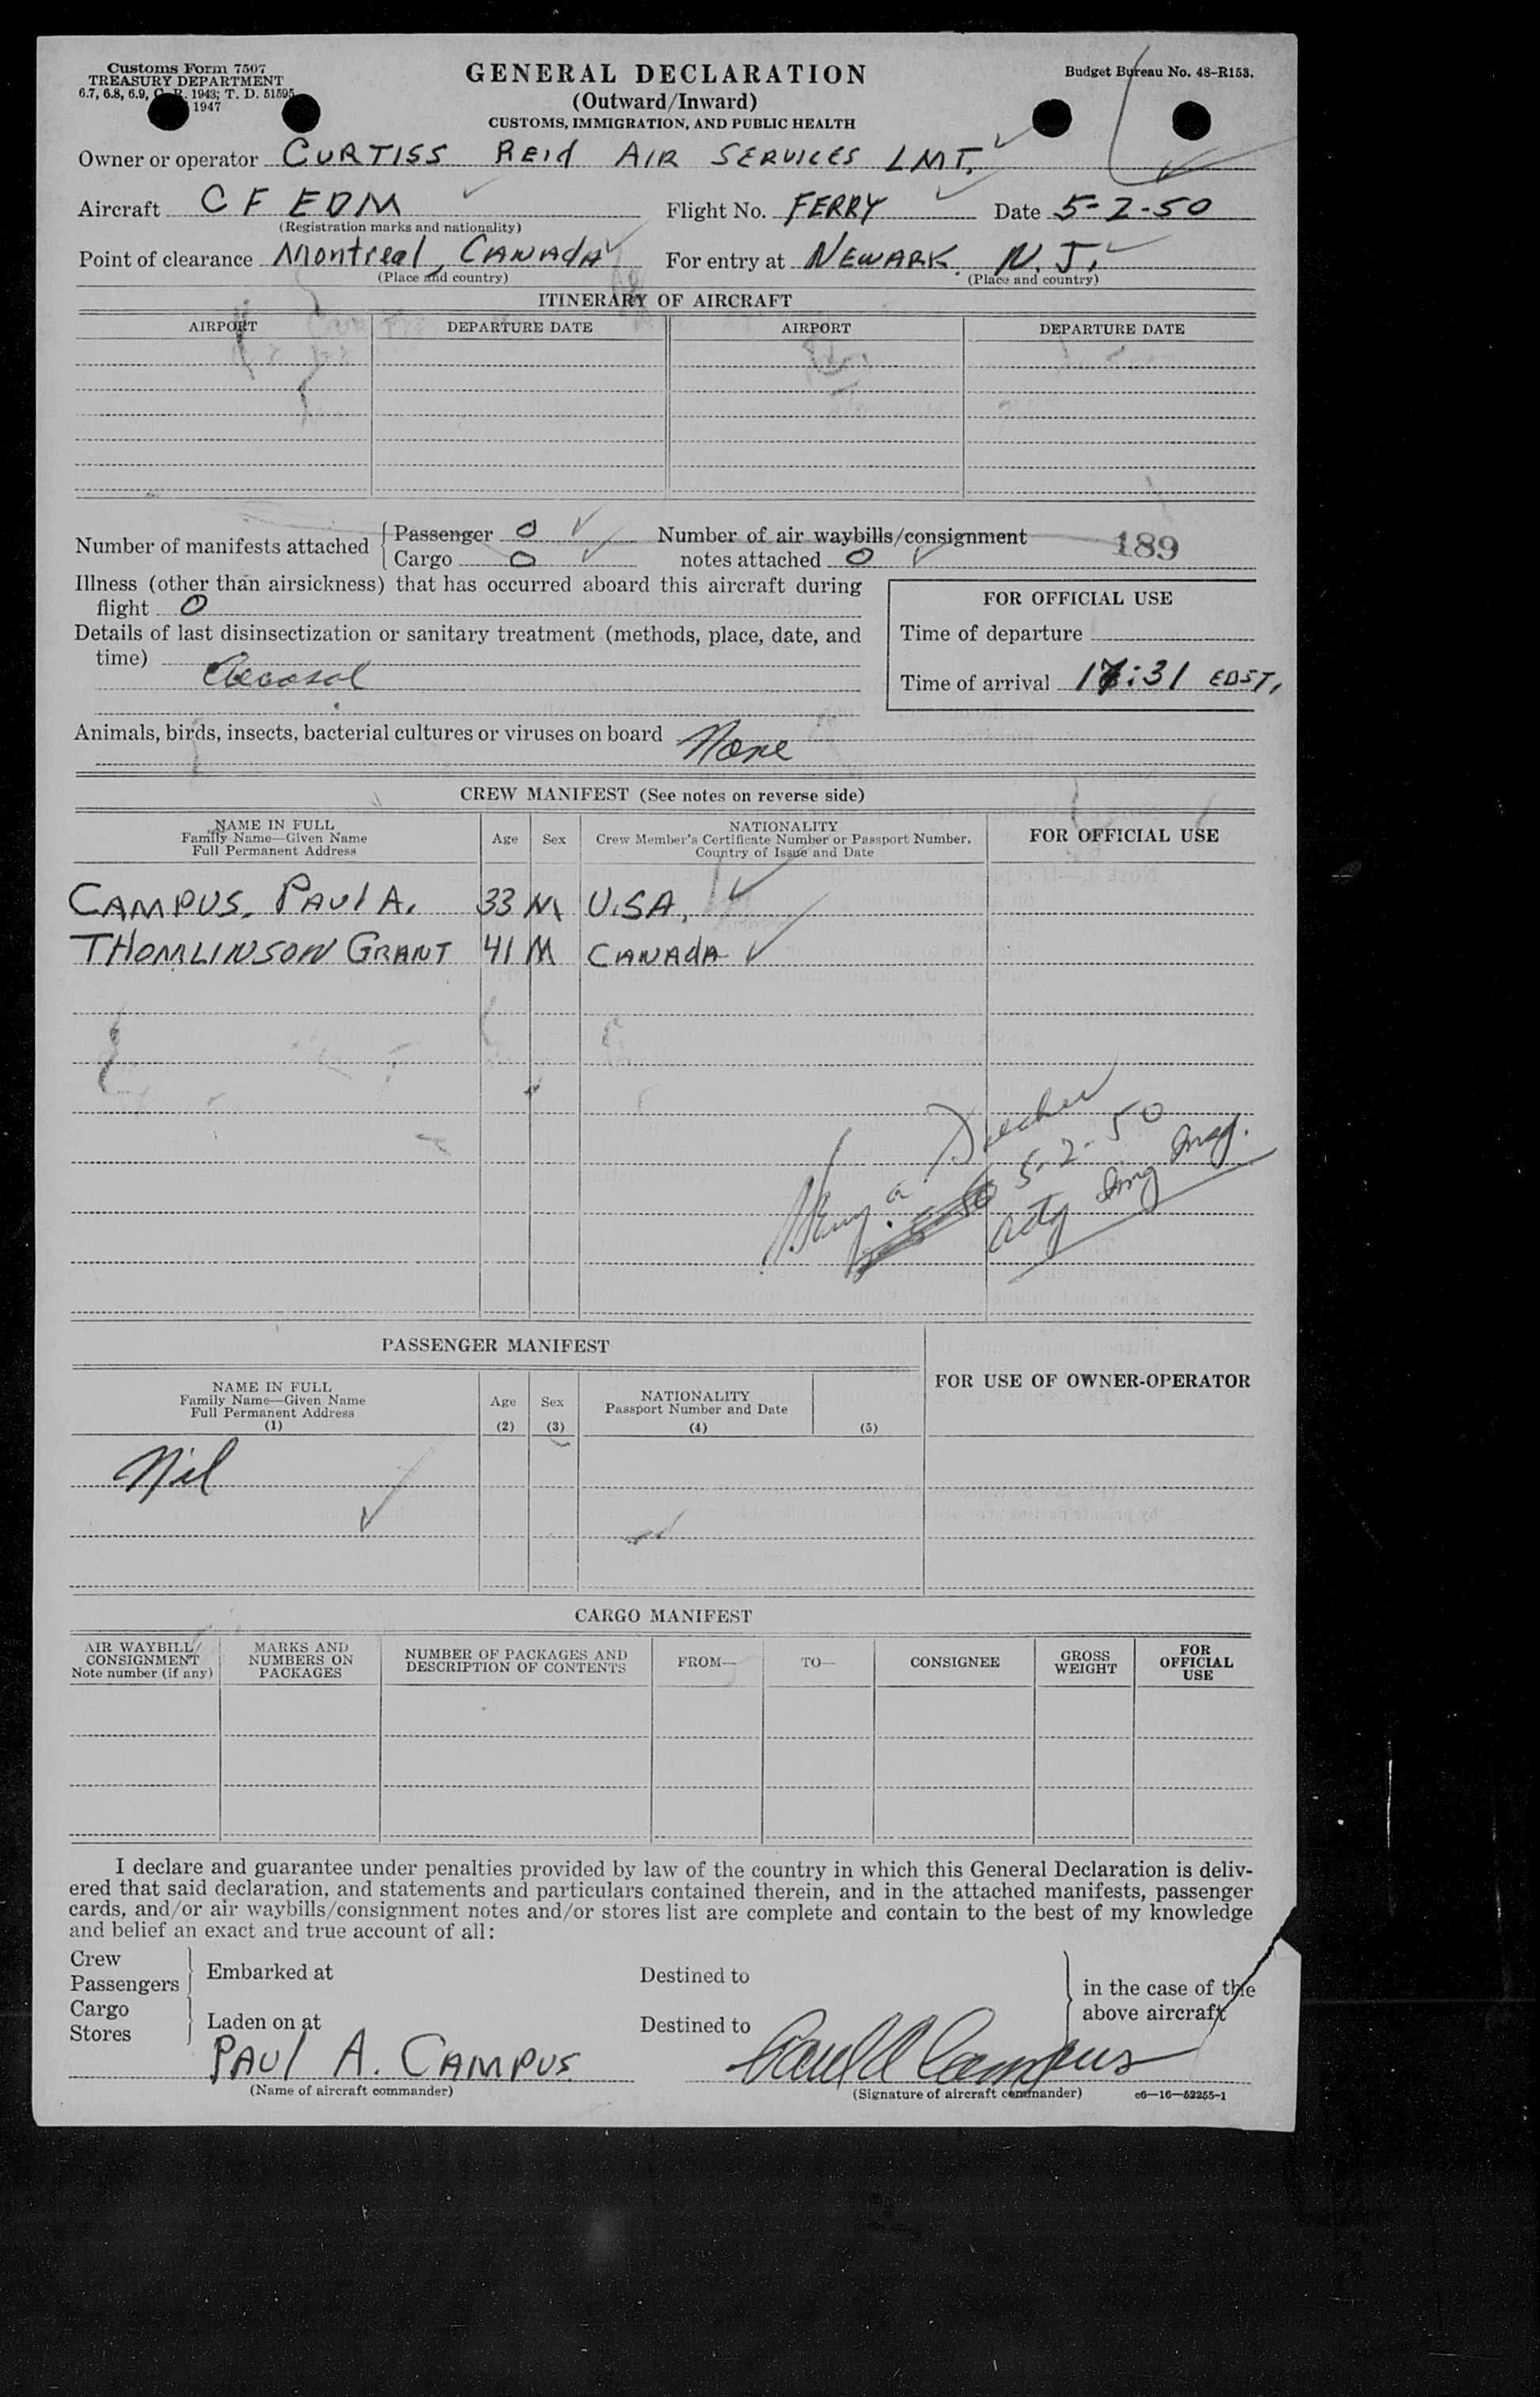 Customs Form 7507
TREASURY DEPARTMENT
6.7, 6.8, 6.9, C. R. 1943; T. D. 51595
1947
GENERAL DECLARATION
(Outward/Inward)
CUSTOMS, IMMIGRATION, AND PUBLIC HEALTH
Budget Bureau No. 48-R153.
Owner or operator CURTISS REID AIR SERVICES LMT.
Aircraft CF EDM Flight No. FERRY Date 5-2-50
(Registration marks and nationality)
Point of clearance Montreal, CANADA For entry at NEWARK N.J.
(Place and country) (Place and country)
ITINERARY OF AIRCRAFT
AIRPORT DEPARTURE DATE AIRPORT DEPARTURE DATE
Number of manifests attached Passenger 0 Number of air waybills/consignment
Cargo 0 notes attached 0
189
Illness (other than airsickness) that has occurred aboard this aircraft during
flight 0
Details of last disinsectization or sanitary treatment (methods, place, date, and
time)
Aerosol
FOR OFFICIAL USE
Time of departure
Time of arrival 17:31 EDST,
Animals, birds, insects, bacterial cultures or viruses on board None
CREW MANIFEST (See notes on reverse side)
NAME IN FULL
Family Name—Given Name
Full Permanent Address
Age Sex
NATIONALITY
Crew Member's Certificate Number or Passport Number,
Country of Issue and Date
FOR OFFICIAL USE
CAMPUS, PAUL A. 33 M U.S.A.
THOMLINSON GRANT 41 M CANADA
Henry A.
5-2-50
Actg Img Insp.
PASSENGER MANIFEST
NAME IN FULL
Family Name—Given Name
Full Permanent Address
(1)
Age
(2)
Sex
(3)
NATIONALITY
Passport Number and Date
(4)
(5)
FOR USE OF OWNER-OPERATOR
Nil
CARGO MANIFEST
AIR WAYBILL/
CONSIGNMENT
Note number (if any)
MARKS AND
NUMBERS ON
PACKAGES
NUMBER OF PACKAGES AND
DESCRIPTION OF CONTENTS
FROM—
TO—
CONSIGNEE
GROSS
WEIGHT
FOR
OFFICIAL
USE
I declare and guarantee under penalties provided by law of the country in which this General Declaration is deliv-
ered that said declaration, and statements and particulars contained therein, and in the attached manifests, passenger
cards, and/or air waybills/consignment notes and/or stores list are complete and contain to the best of my knowledge
and belief an exact and true account of all:
Crew
Passengers
Embarked at Destined to
Cargo
Stores
Laden on at Destined to
in the case of the
above aircraft
PAUL A. CAMPUS Paul A Campus
(Name of aircraft commander) (Signature of aircraft commander) c6—16—52255-1